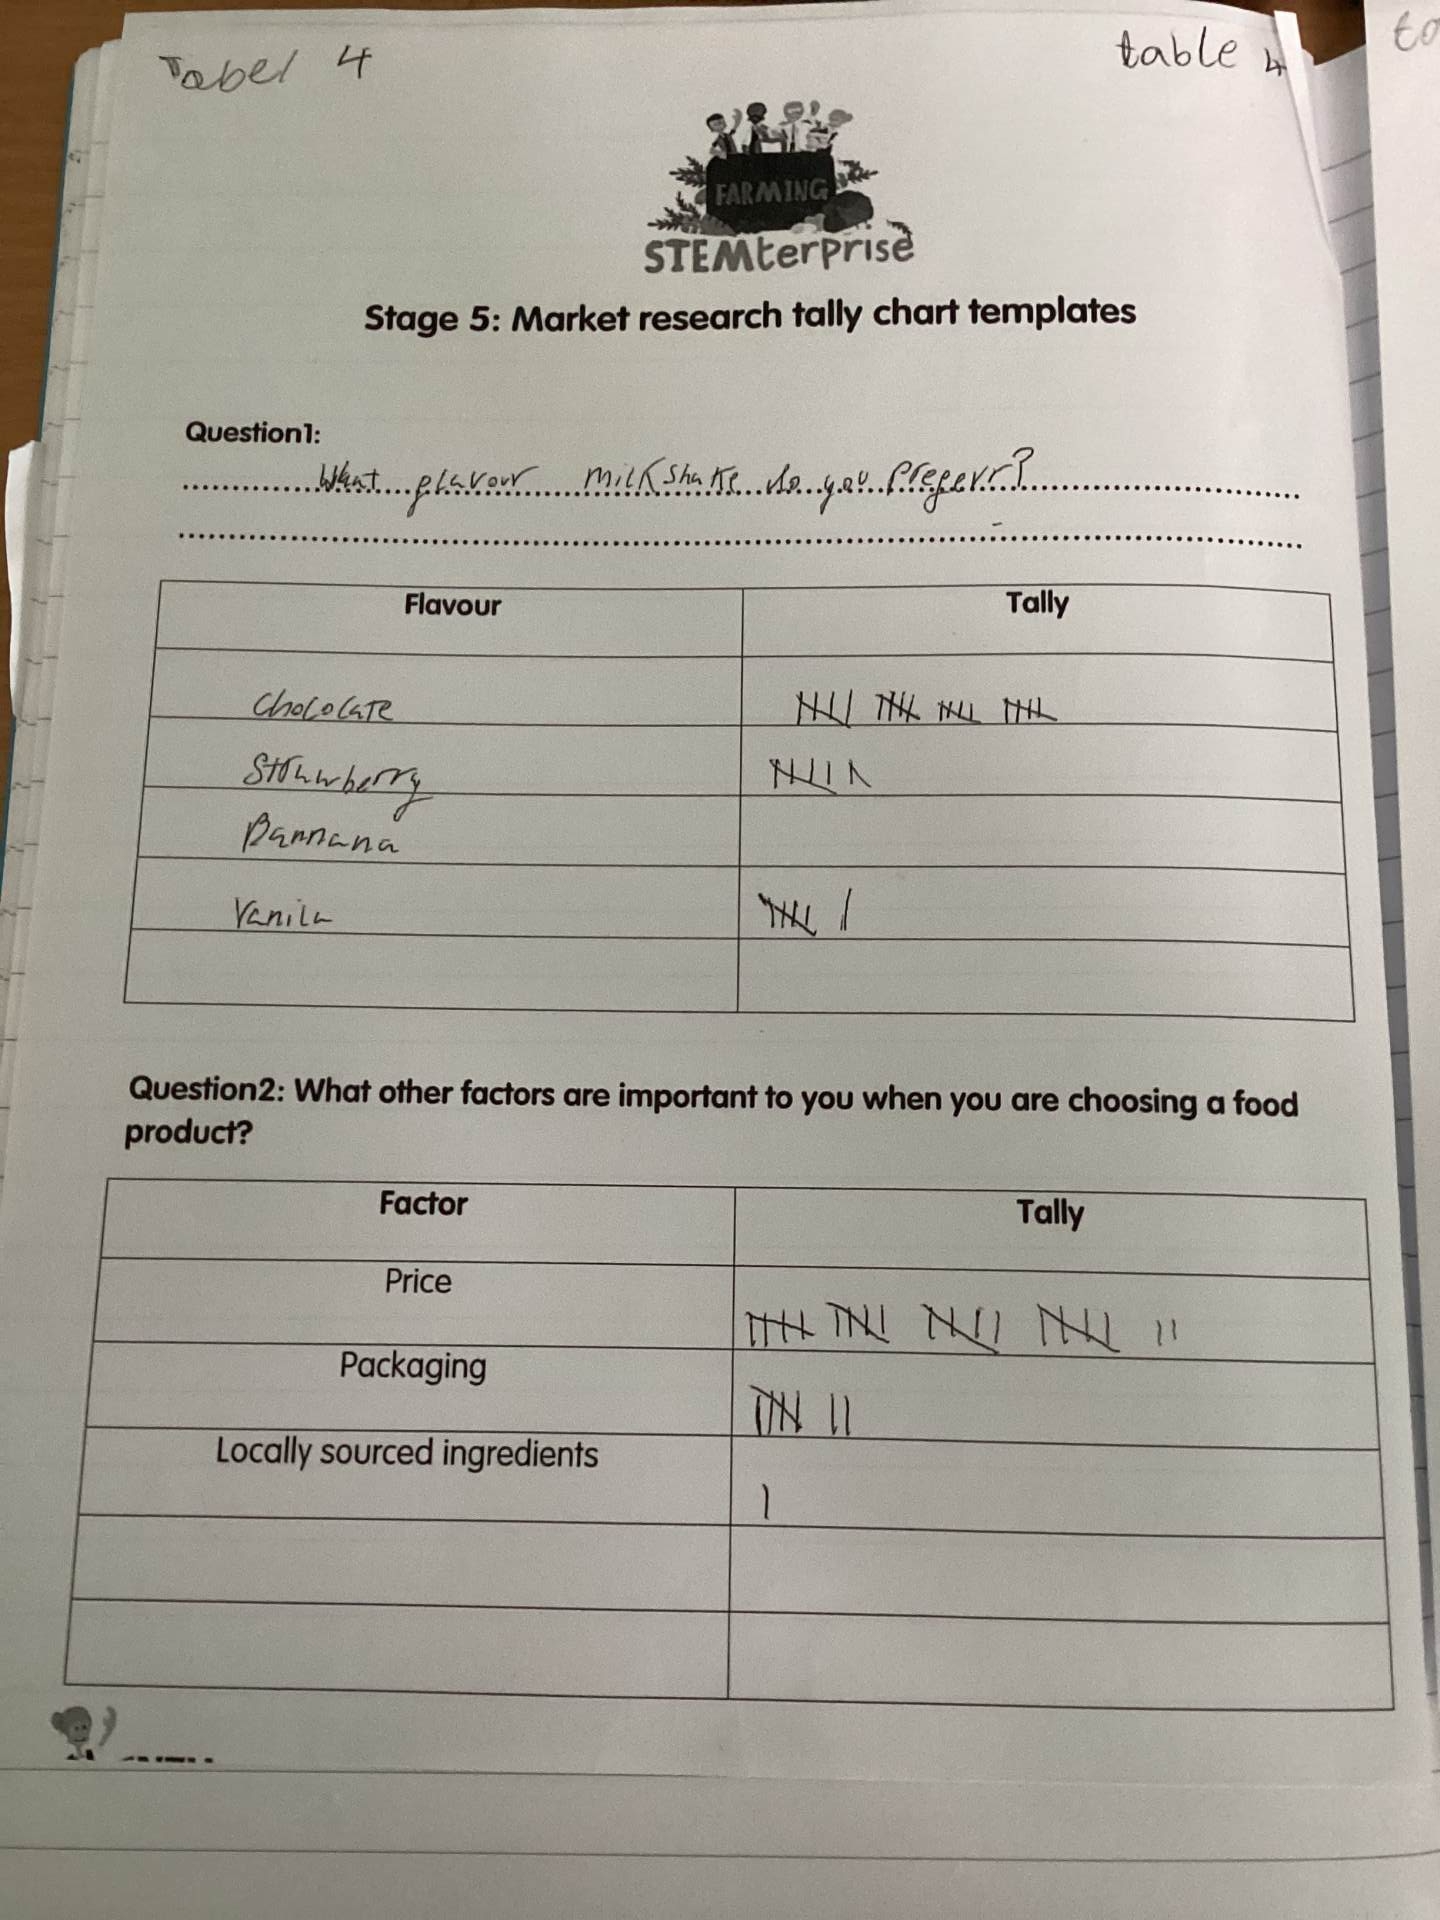 Tabel 4
table 4
to
FARMING
STEMterprise
Stage 5: Market research tally chart templates
Question1:
What flavour milkshake do you preferr?
Flavour Tally
Chocolate
Strawberry
Bannana
Vanila
Question2: What other factors are important to you when you are choosing a food
product?
Factor Tally
Price
Packaging
Locally sourced ingredients